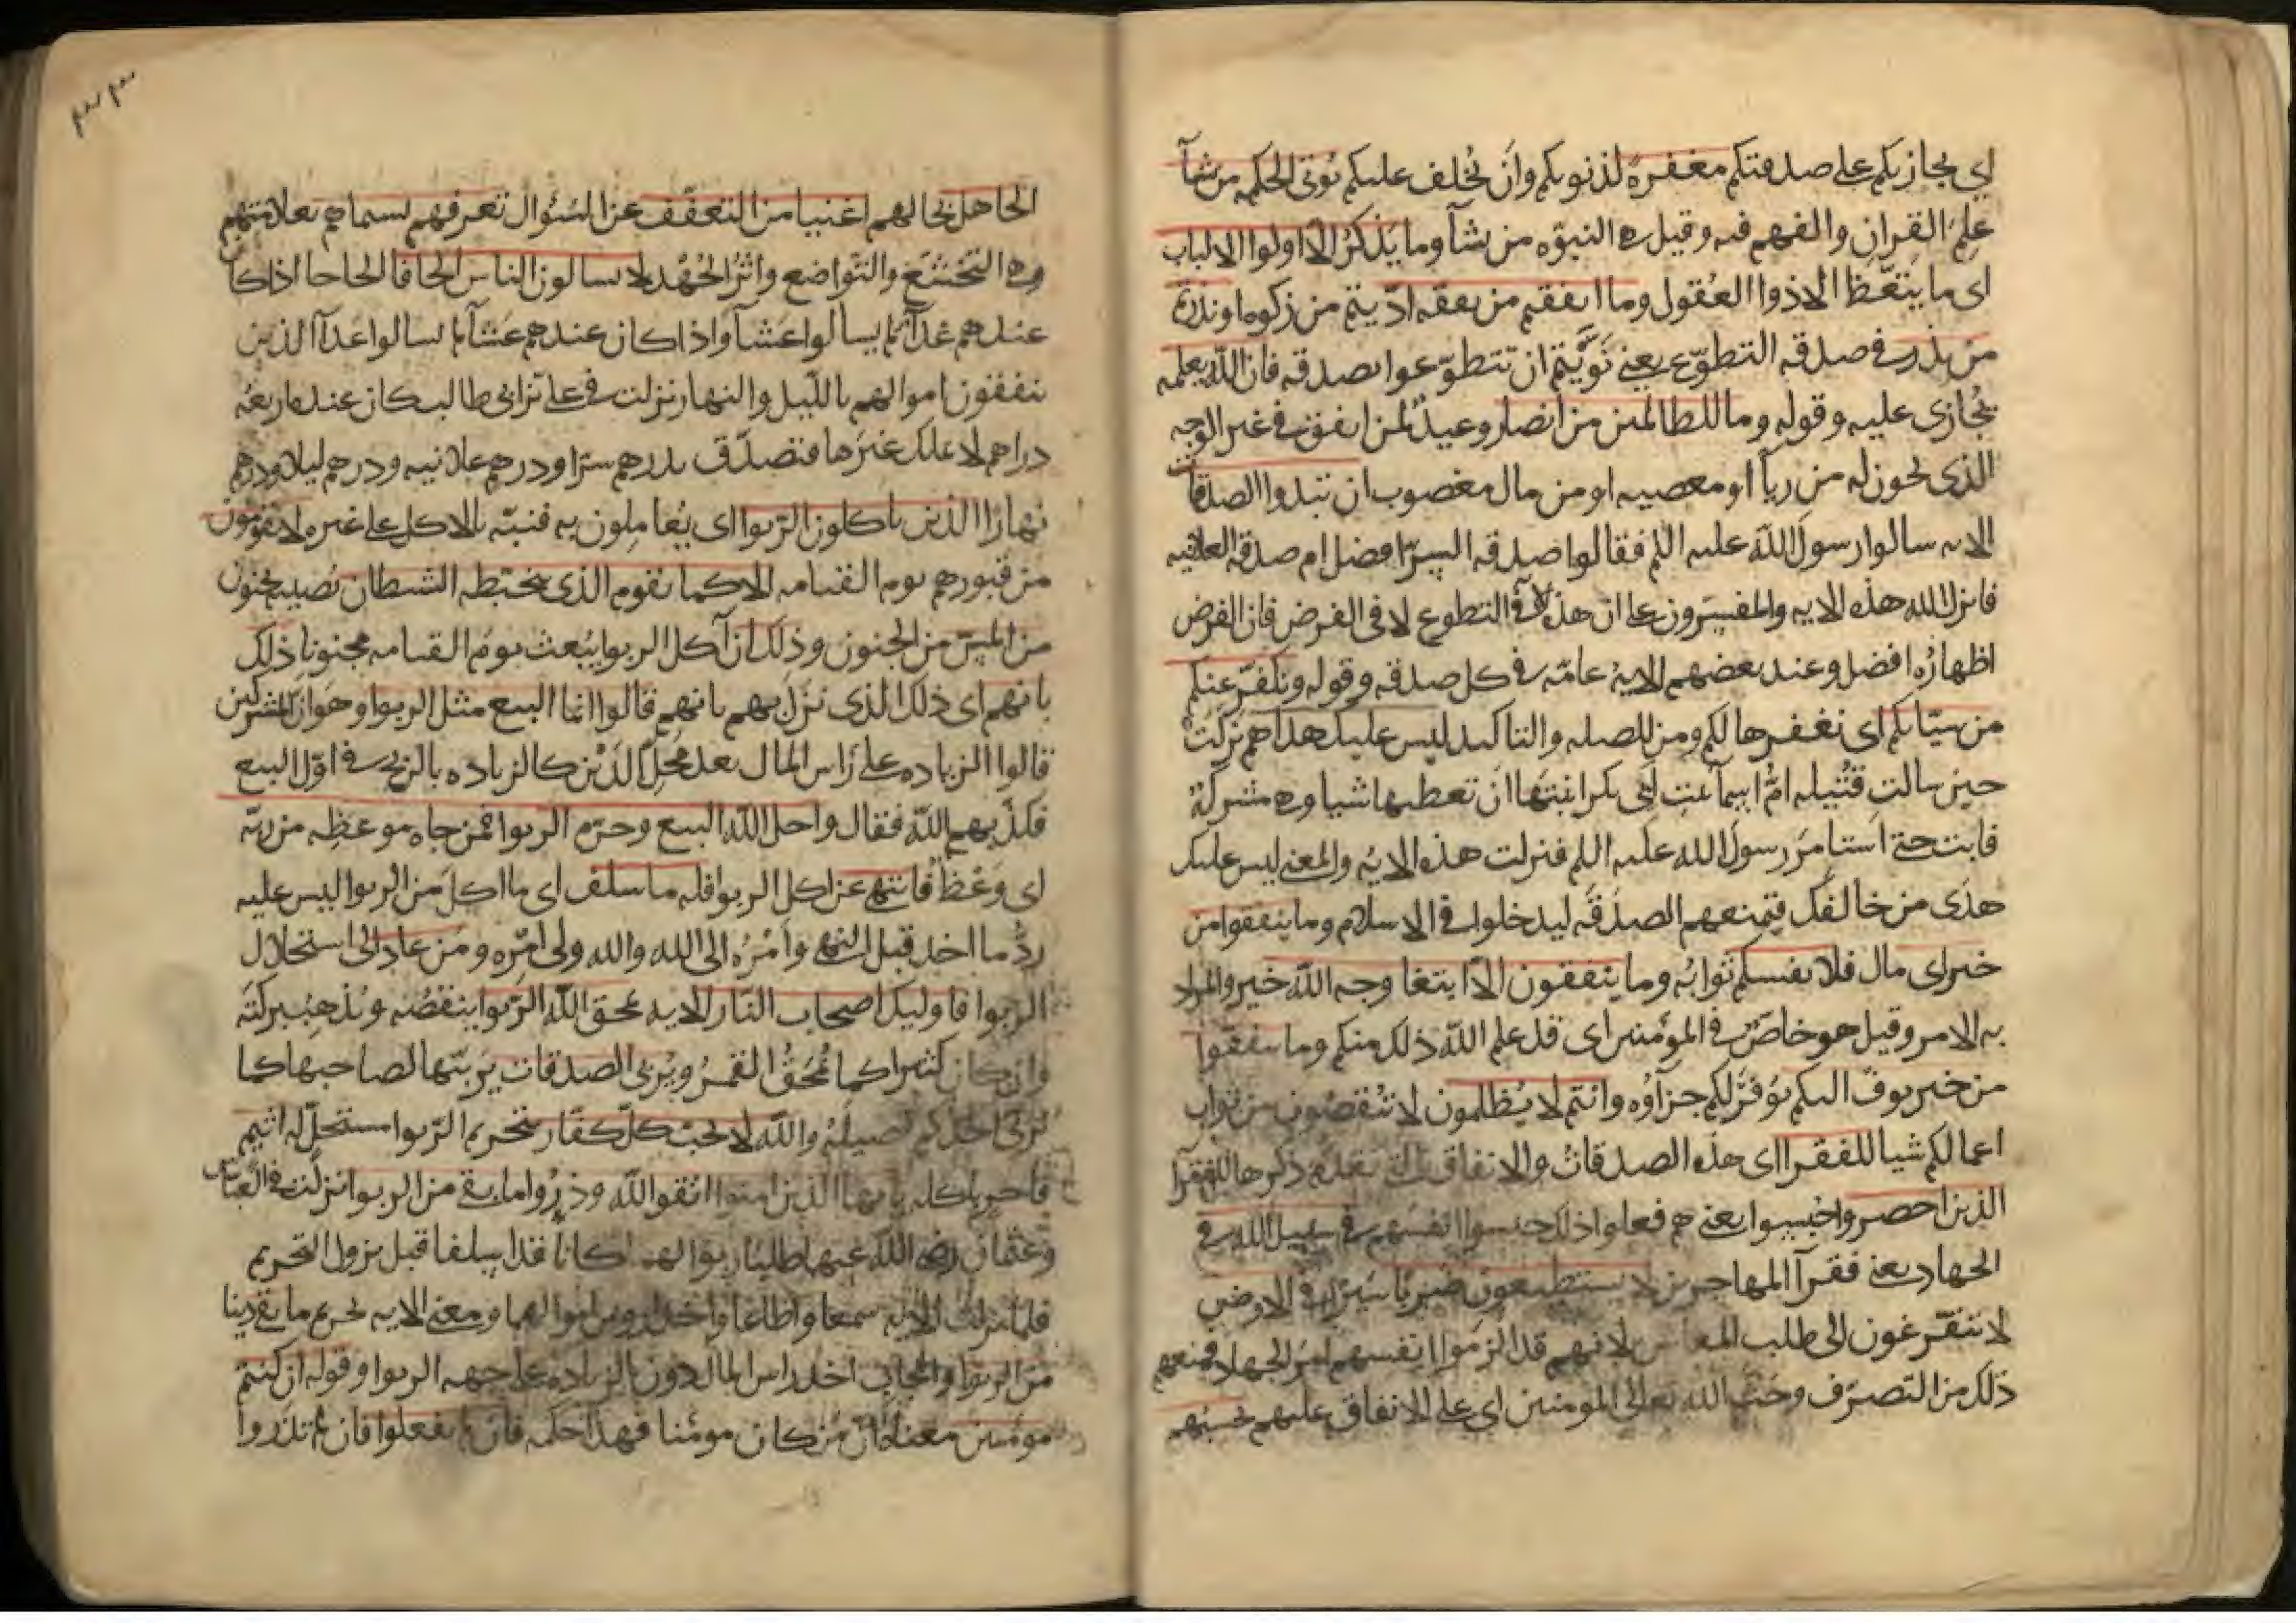 اي يجازيكم على صدقتكم مغفرة لذنوبكم وان يخلف عليكم يوتى الحكمه من يشآ
علم القران والفهم فيه وقيل هي النبوه من يشآ وما يذكر الا اولوا الالباب
اى ما يتعظ الا ذووا العقول وما انفقتم من نفقه اديتم من زكوه او نذرتم
من نذر في صدقه التطوع يعني نويتم ان تتطوعوا بصدقه فان الله يعلمه
يجازى عليه وقوله وما للظالمين من انصار وعيد لمن انفق في غير الوجه
الذى يجوز له من ريآ او معصيه او من مال مغصوب ان تبدوا الصدقات
الايه سالوا رسول الله عليه اللم فقالوا صدقه السر افضل ام صدقه العلانيه
فانزل الله هذه الايه والمفسرون على ان هذه الآية في التطوع لا في الفرض فان الفرض
اظهاره افضل وعند بعضهم الايه عامه في كل صدقه وقوله ونكفر عنكم
من سياتكم اى نغفرها لكم ومن للصله والتاكيد ليس عليك هداهم نزلت
حين سالت قتيله ام اسمآ بنت ابى بكر ابنتها ان تعطيها شيا وهي مشركة
فابت حتى استامر رسول الله عليه اللم فنزلت هذه الايه والمعنى ليس عليك
هدى من خالفك فتمنعهم الصدقه ليدخلوا في الاسلام وما ينفقوا من
خير اى مال فلانفسكم ثوابه وما ينفقون الا ابتغا وجه الله خير والمراد
به الامر وقيل هو خاص في المومنين اى قد علم الله ذلك منكم وما ينفقوا
من خير يوف اليكم يوفر لكم جزآوه وانتم لا يظلمون لا تنقصون من ثواب
اعمالكم شيا للفقرا اى هذه الصدقات والانفاق تقدم ذكرها للفقرآ
الذين احصروا حبسوا يعني هم فعلوا ذلك حبسوا انفسهم في سبيل الله في
الجهاد يعني فقرآ المهاجرين لا يستطيعون ضربا سيرا في الارض
لا يتفرغون الى طلب المعاش لانهم قد الزموا انفسهم امر الجهاد فمنعهم
ذلك من التصرف وحث الله تعالى المومنين اي على الانفاق عليهم يحسبهم
الجاهل يخالهم اغنيا من التعفف عن السئوال تعرفهم بسيماهم بعلامتهم
وهي التخشع والتواضع واثر الجهد لا يسالون الناس الحافا الحاحا اذا كان
عندهم غدآ لم يسالوا عشآ واذا كان عندهم عشآ لم يسالوا غدآ الذين
ينفقون اموالهم بالليل والنهار نزلت في علي بن ابي طالب كان عنده اربعه
دراهم لا يملك غيرها فتصدق بدرهم سرا ودرهم علانيه ودرهم ليلا ودرهم
نهارا الذين ياكلون الربوا اى يعاملون به فنبه بالاكل على غيره لا يقومون
من قبورهم يوم القيامه الا كما يقوم الذى يتخبطه الشيطان يصيبه بجنون
من المس من الجنون وذلك ان آكل الربوا يبعث يوم القيامه مجنونا ذلك
بانهم اى ذلك الذى نزل بهم بانهم قالوا انما البيع مثل الربوا وهو ان المشركين
قالوا الزياده على راس المال بعد محل الدين كالزياده بالربح في اول البيع
فكذبهم الله فقال واحل الله البيع وحرم الربوا فمن جاه موعظه من ربه
اى وعظ فانتهى عن اكل الربوا فله ما سلف اى ما اكل من الربوا ليس عليه
رد ما اخذ قبل النهي وامره الى الله والله ولي امره ومن عاد الى استحلال
الربوا فاوليك اصحاب النار الايه يمحق الله الربوا ينقصه ويذهب بركته
وان كان كثيرا كما يمحق القمر ويربى الصدقات يربيها لصاحبها كما
يربى احدكم فصيله والله لا يحب كل كفار بتحريم الربوا مستحل له اثيم
فاجر باكله يايها الذين امنوا اتقوا الله وذروا ما بقي من الربوا نزلت في العباس
وعثمان رضي الله عنهما طلبا ربوا لهما كانا قد اسلفا قبل نزول التحريم
فلما نزلت الايه سمعا واطاعا واخذا روس اموالهما ومعنى الايه تحريم ما بقي دينا
من الربوا وايجاب اخذ راس المال دون الزياده على جهه الربوا وقوله ان كنتم
مومنين معناه ان من كان مومنا فهذا حكمه فان لم تفعلوا فان لم تذروا